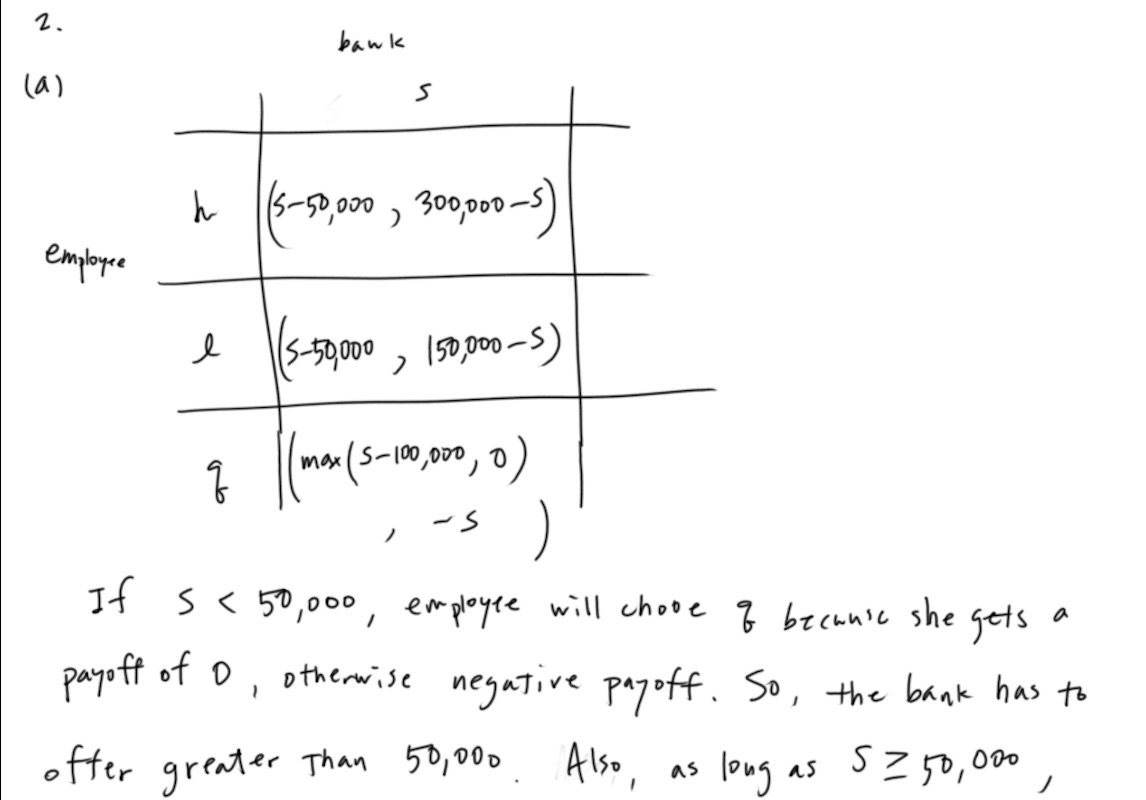 2.
bank
(a)
s
h (s-50,000 , 300,000-s)
employee
l (s-50,000 , 150,000-s)
q (max(s-100,000, 0)
, -s )
If s < 50,000, employee will choose q because she gets a
payoff of 0, otherwise negative payoff. So, the bank has to
offer greater than 50,000. Also, as long as s ≥ 50,000,